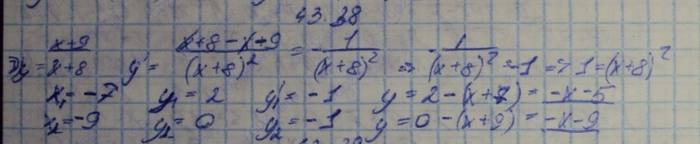 43.38
y = x+9/x+8 y' = x+8-x-9/(x+8)² = -1/(x+8)² => -1/(x+8)² = -1 => 1 = (x+8)²
x₁ = -7 y₁ = 2 y₁' = -1 y = 2-(x+7) = -x-5
x₂ = -9 y₂ = 0 y₂' = -1 y = 0-(x+9) = -x-9